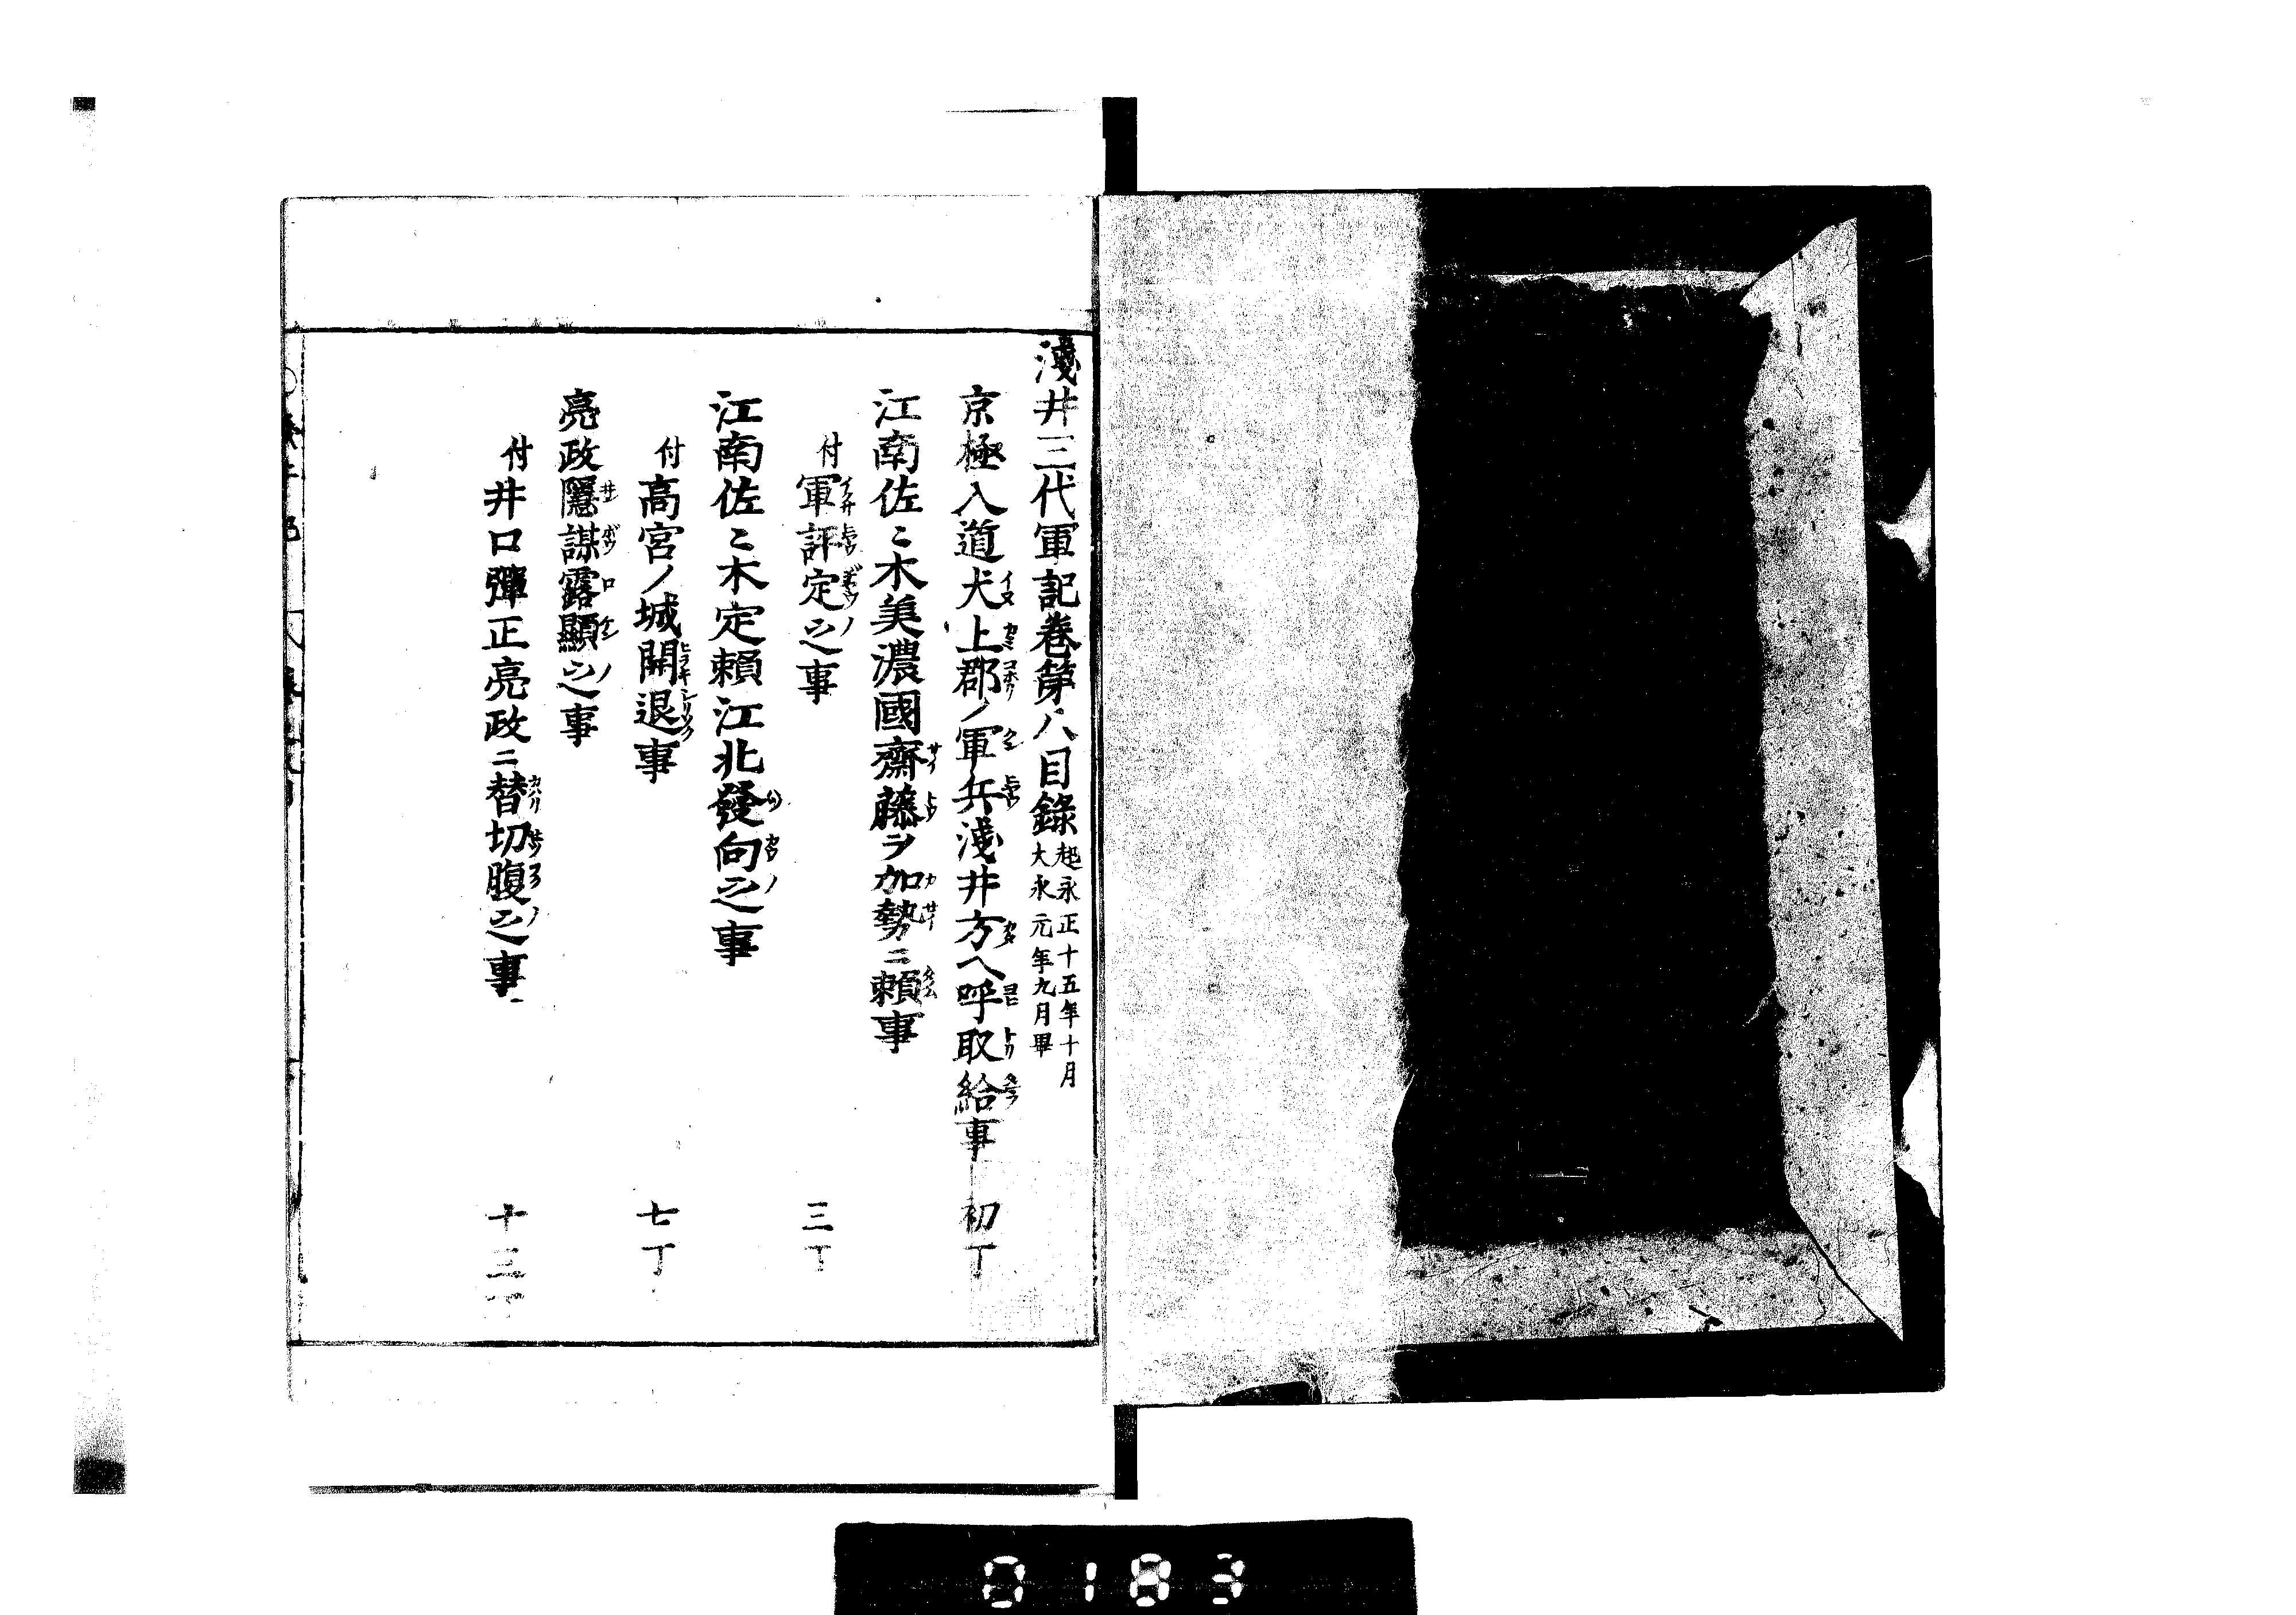 淺井三代軍記卷第八目錄 起永正十五年十月
大永元年九月畢
京極入道犬上郡ノ軍兵淺井方ヘ呼取給事 初丁
江南佐々木美濃國齋藤ヲ加勢ニ賴事
付軍評定之事 三丁
江南佐々木定賴江北發向之事
付高宮ノ城開退事 七丁
亮政隱謀露顯之事
付井口彈正亮政ニ替切腹之事 十三丁
0183